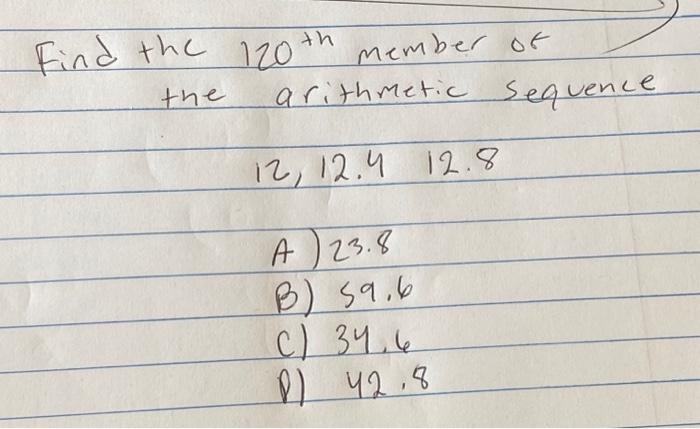 Find the 120th member of
the arithmetic sequence
12, 12.4 12.8
A) 23.8
B) 59.6
C) 34.6
D) 42.8